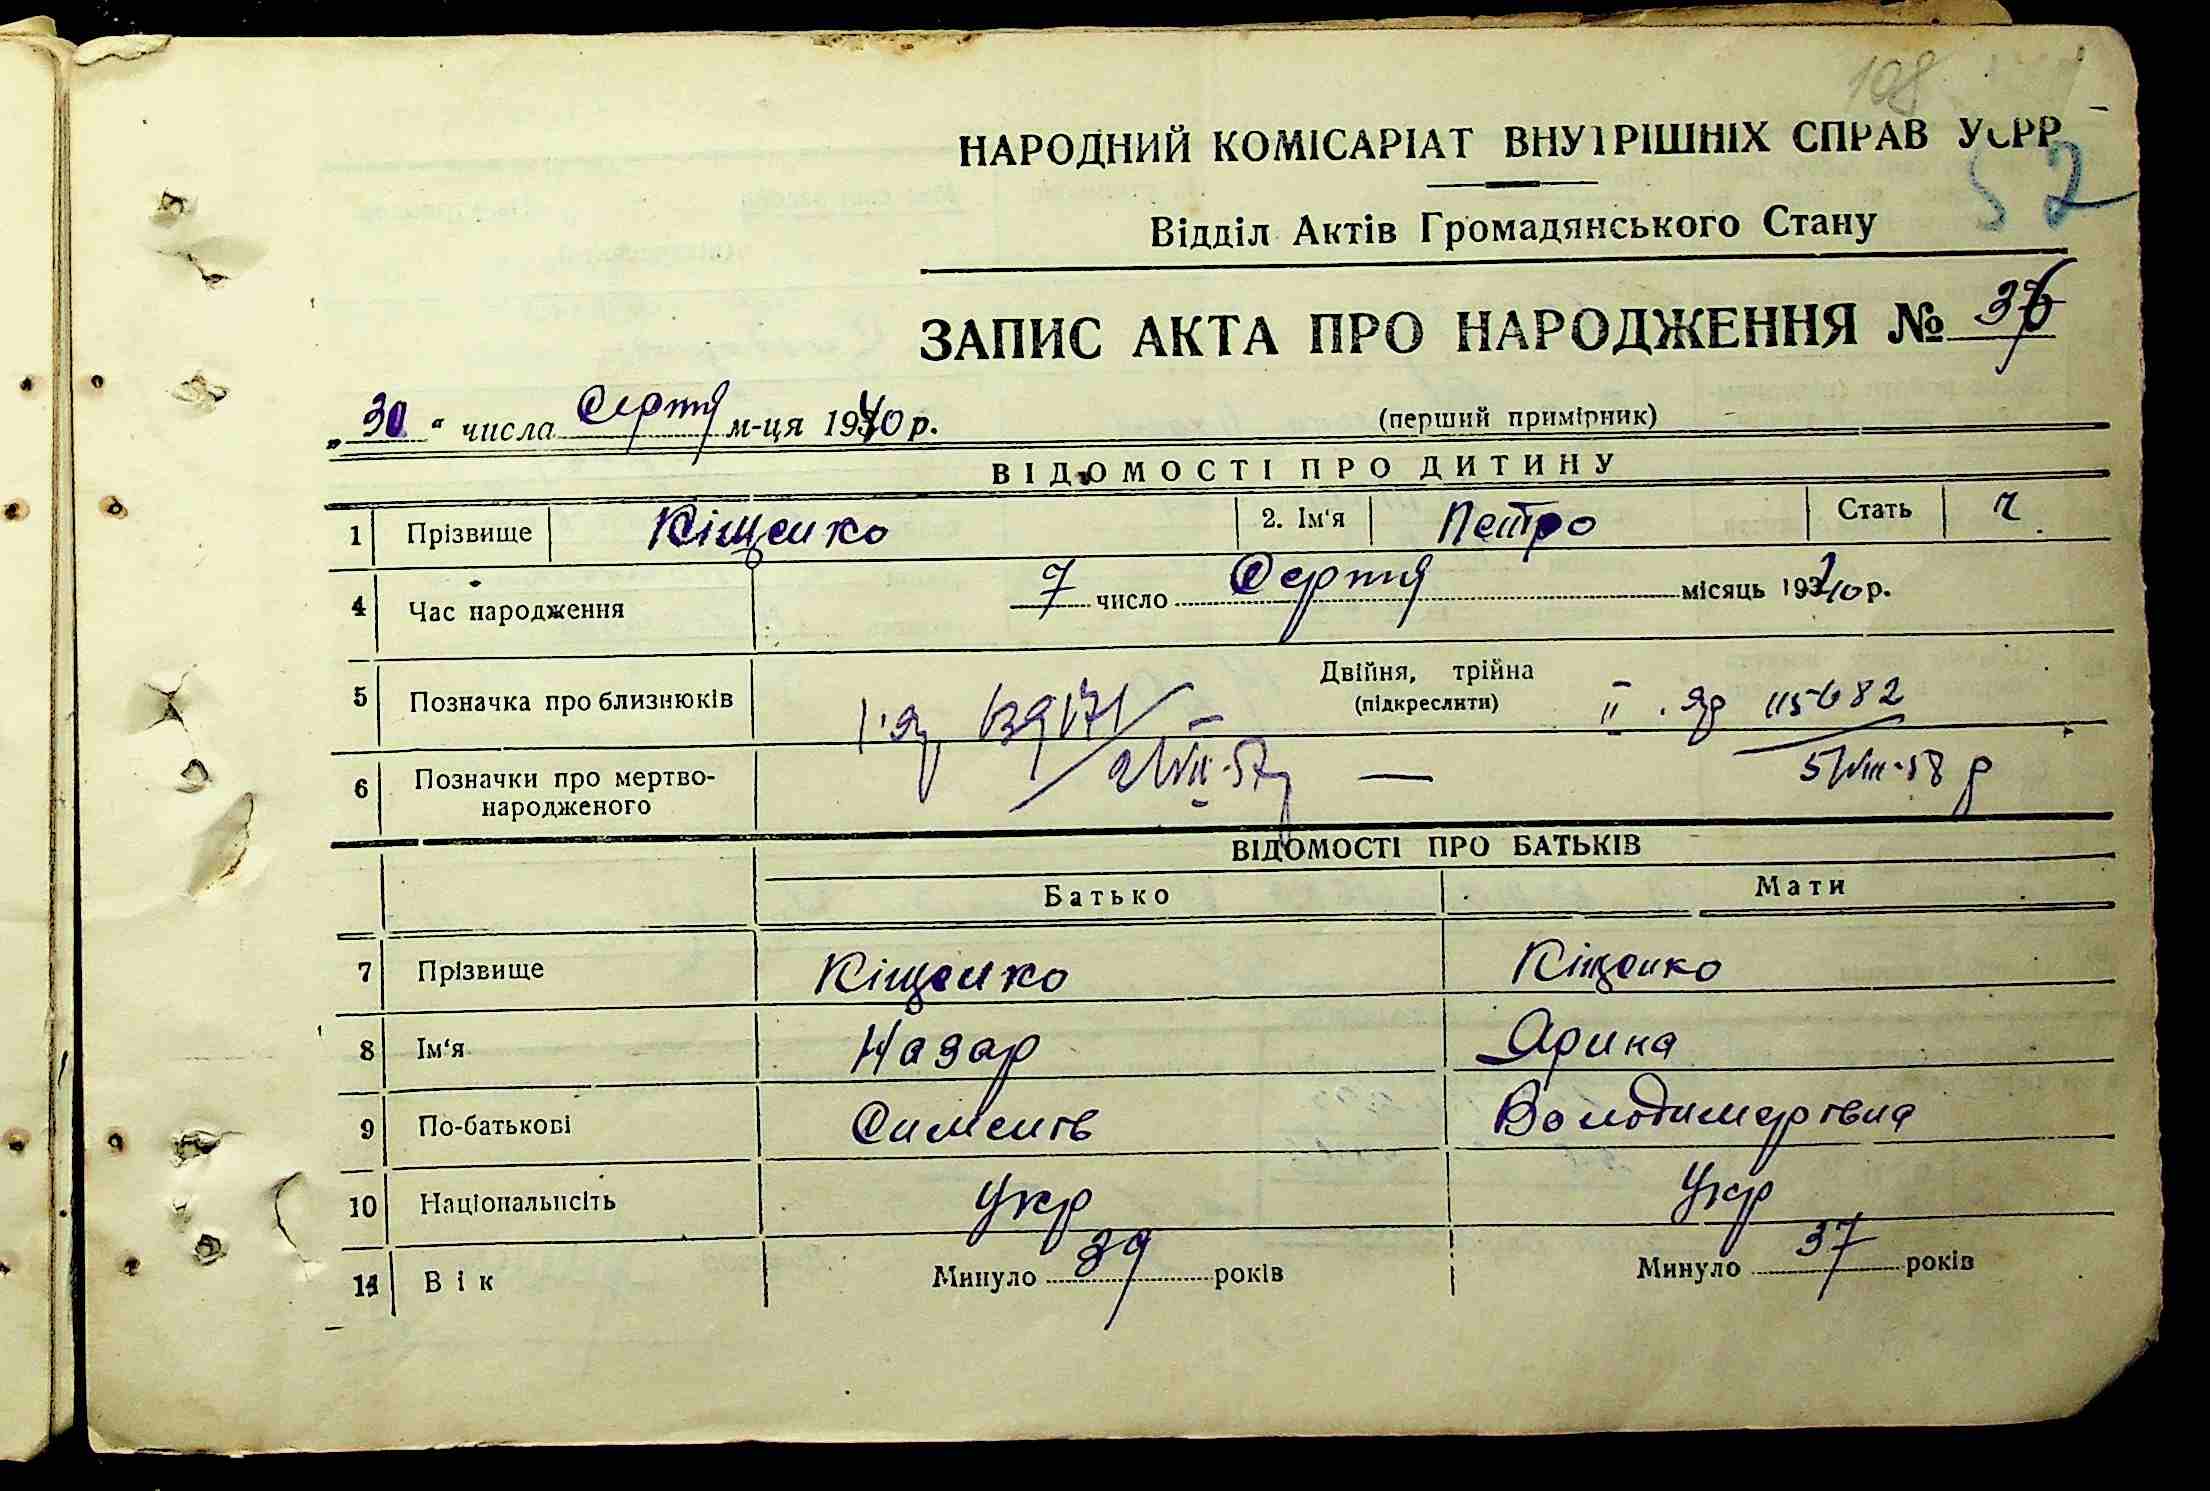 108
НАРОДНИЙ КОМІСАРІАТ ВНУТРІШНІХ СПРАВ УСРР
52
Відділ Актів Громадянського Стану
ЗАПИС АКТА ПРО НАРОДЖЕННЯ № 36
„30“ числа Серпня м-ця 1940 р. (перший примірник)
ВІДОМОСТІ ПРО ДИТИНУ
1 Прізвище Кіщенко 2. Ім'я Петро Стать ч
4 Час народження 7 число Серпня місяць 1940 р.
5 Позначка про близнюків Двійня, трійна
(підкреслити) II
115682
6 Позначки про мертво-народженого — 5/VIII-58 р
ВІДОМОСТІ ПРО БАТЬКІВ
Батько Мати
7 Прізвище Кіщенко Кіщенко
8 Ім'я Назар Ярина
9 По-батькові Симонів Володимирівна
10 Національність Укр Укр
11 Вік Минуло 39 років Минуло 37 років